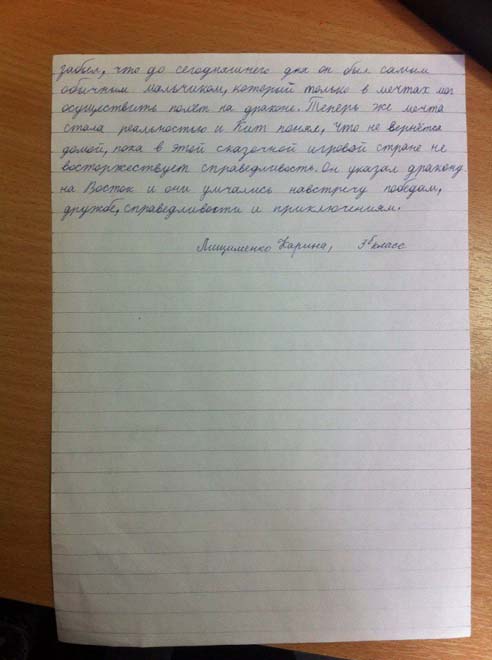 забыл, что до сегодняшнего дня он был самым
обычным мальчиком, который только в мечтах мог
осуществить полёт на драконе. Теперь же мечта
стала реальностью и Кит понял, что не вернётся
домой, пока в этой сказочной игровой стране не
восторжествует справедливость. Он указал дракону
на Восток и они умчались навстречу победам,
дружбе, справедливости и приключениям.
Лищименко Карина, класс